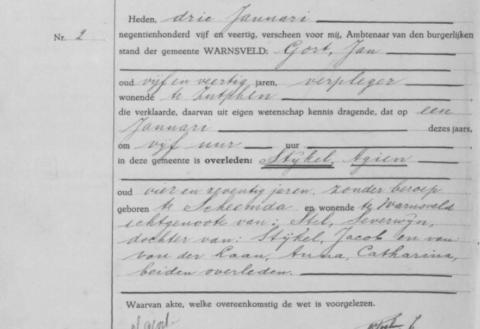 Heden, drie Januari
Nr. 2
negentienhonderd vijf en veertig, verscheen voor mij, Ambtenaar van den burgerlijken
stand der gemeente WARNSVELD: Gort, Jan
oud vijf en veertig jaren, verpleger
wonende te Zutphen
die verklaarde, daarvan uit eigen wetenschap kennis dragende, dat op een
Januari dezes jaars,
om vijf uur uur
in deze gemeente is overleden: Stijkel, Agien
oud vier en zeventig jaren, zonder beroep
geboren te Scheemda en wonende te Warnsveld
echtgenoote van: Stel, Severwijn,
dochter van: Stijkel, Jacob en van
van der Laan, Anna, Catharina,
beiden overleden.
Waarvan akte, welke overeenkomstig de wet is voorgelezen.